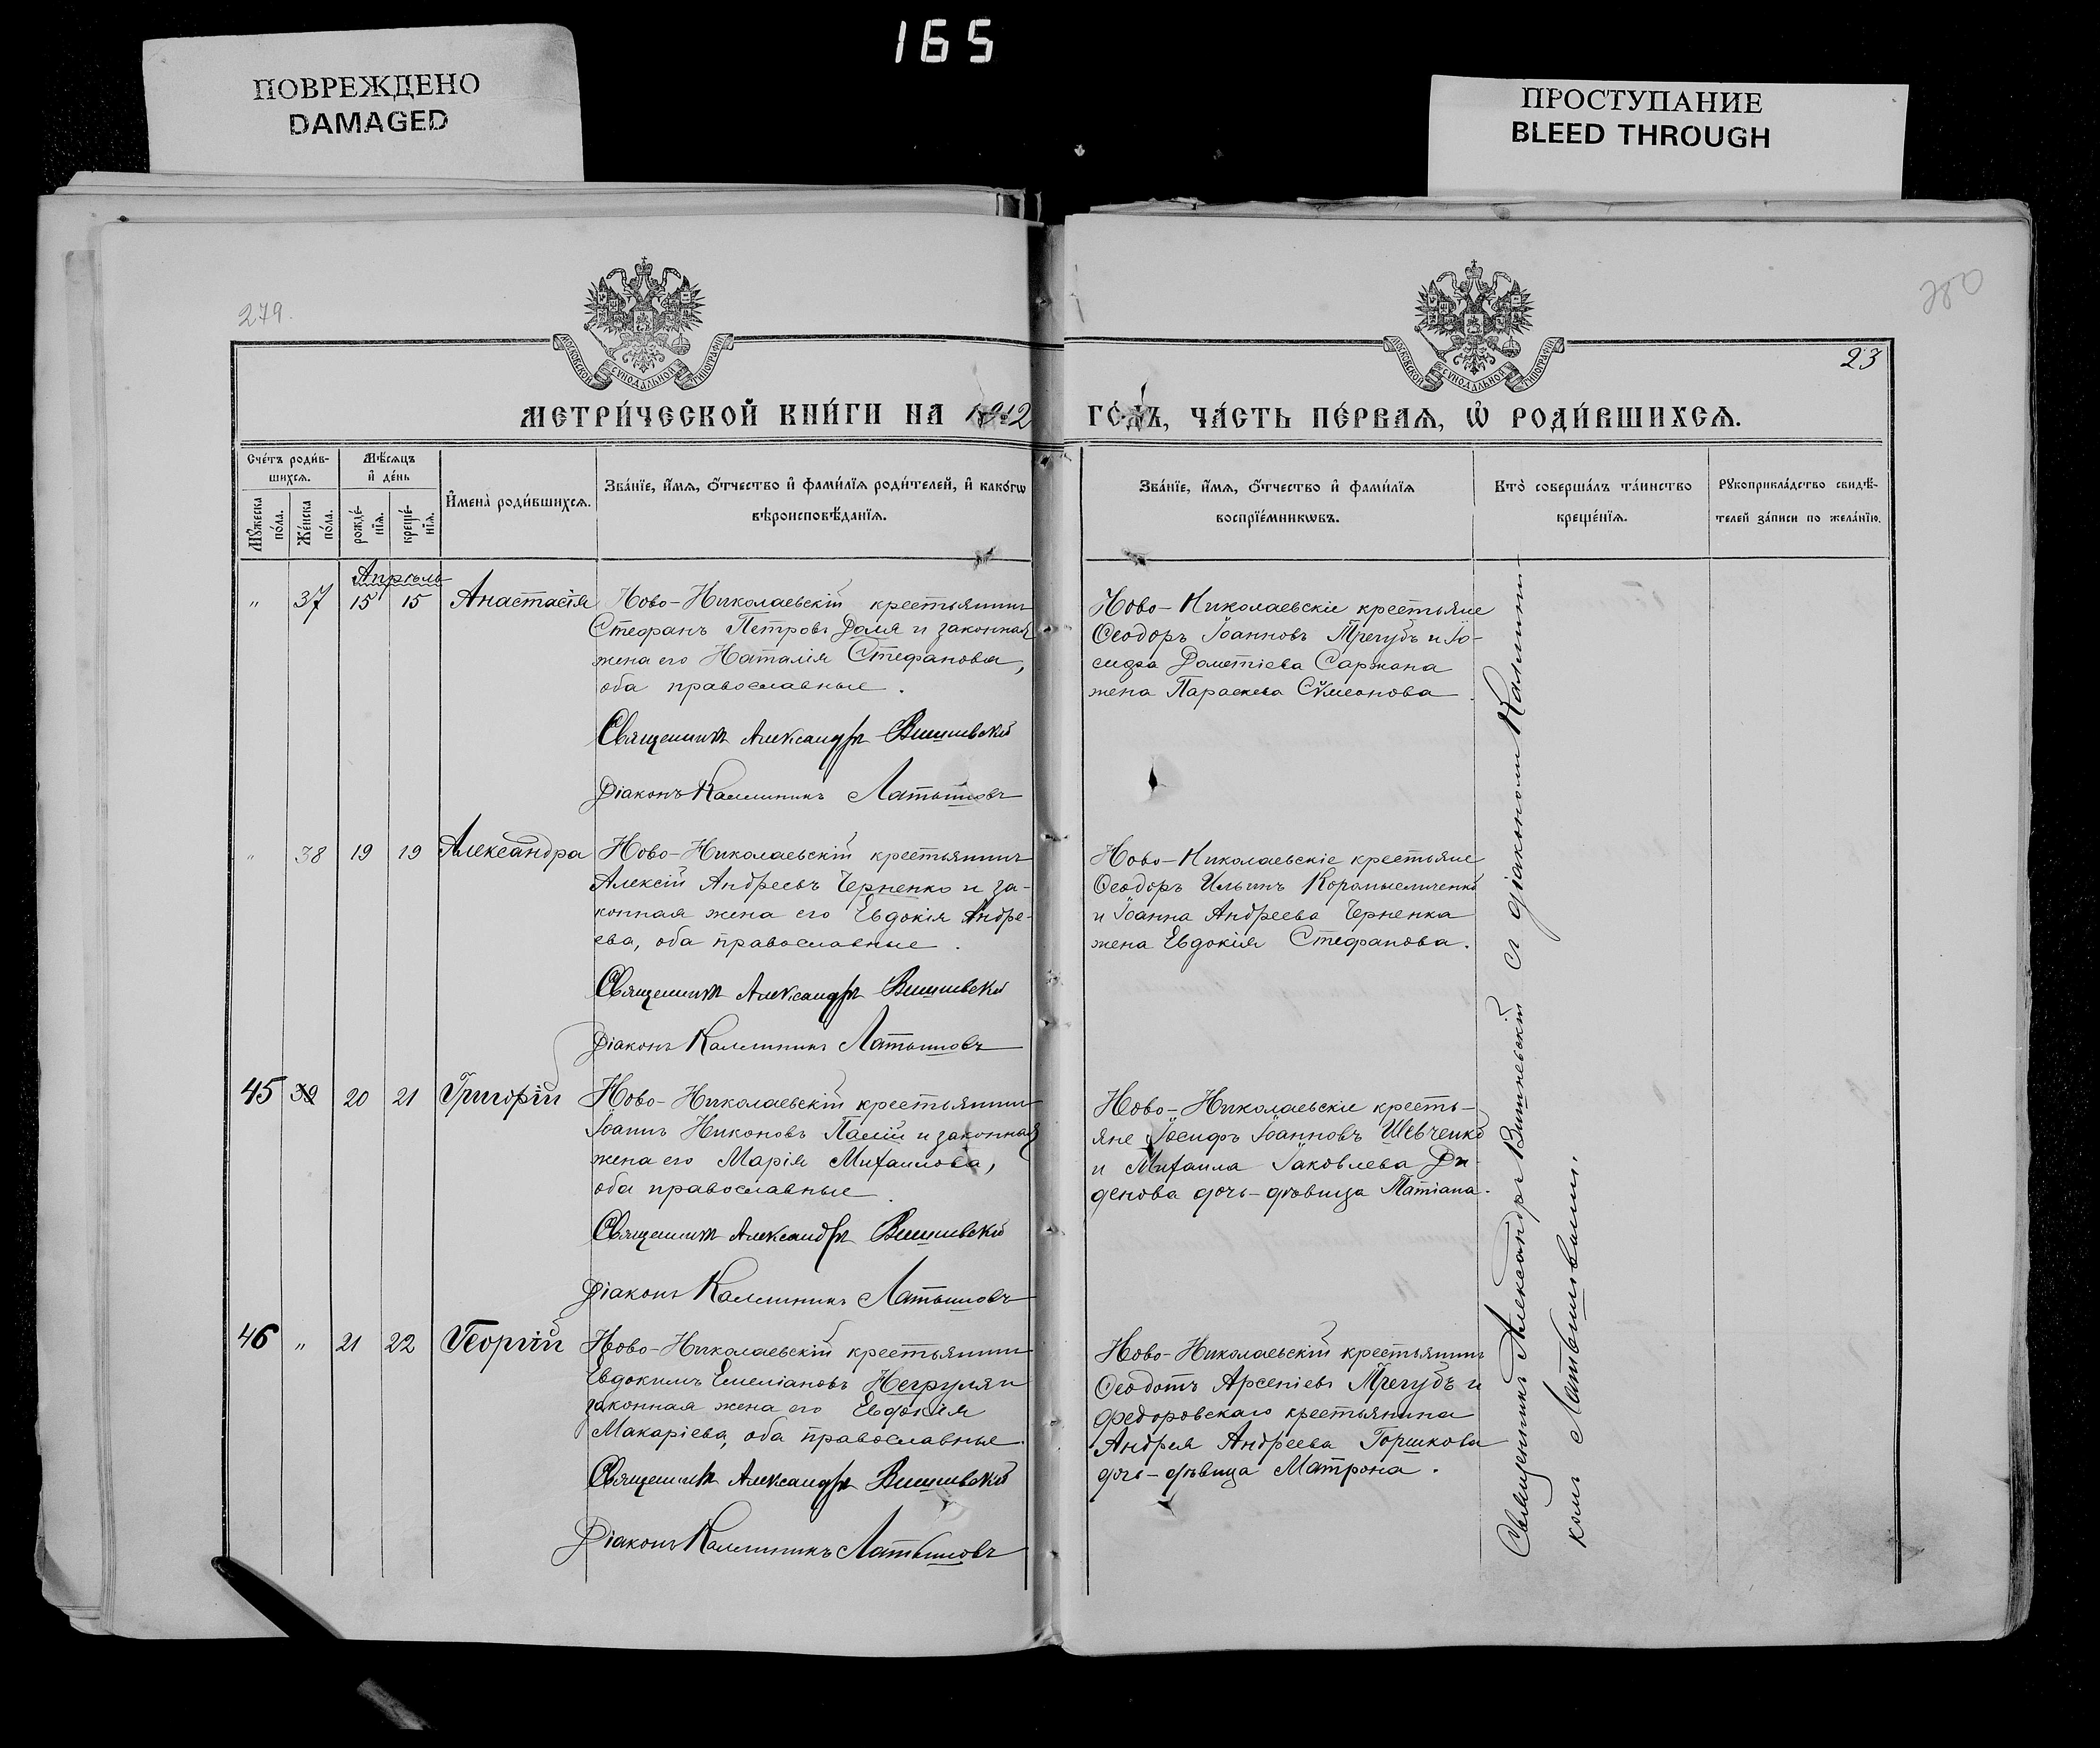 165
ПОВРЕЖДЕНО
DAMAGED
ПРОСТУПАНИЕ
BLEED THROUGH
279.
280
23
МОСКОВСКОЙ СѴНОДАЛЬНОЙ ТИПОГРАФІИ
МОСКОВСКОЙ СѴНОДАЛЬНОЙ ТИПОГРАФІИ
МЕТРИ́ЧЕСКОЙ КНИ́ГИ НА 1912 ГО́ДЪ, ЧА́СТЬ ПЕ́РВАѦ, Ѡ РОДИ́ВШИХСѦ.
Сче́тъ роди́в-
шихсѧ.
Мꙋ́жеска по́ла.
Же́нска по́ла.
Мѣ́сѧцъ
и҆ де́нь
рожде́-
нїѧ.
креще́-
нїѧ.
И҆мена̀ роди́вшихсѧ.
Зва́нїе, и҆́мѧ, ѻ҆́тчество и҆ фами́лїѧ роди́телей, и҆ како́гѡ
вѣроисповѣ́данїѧ.
Зва́нїе, и҆́мѧ, ѻ҆́тчество и҆ фами́лїѧ
воспрїе́мникѡвъ.
Кто̀ соверша́лъ та́инство
креще́нїѧ.
Рꙋкоприкла́дство свидѣ́-
телей за́писи по жела́нїю.
Апрѣль
" 37 15 15 Анастасія
Ново-Николаевскій крестьянинъ
Стефанъ Петровъ Доля и законная
жена его Наталія Стефанова,
оба православные.
Священникъ Александръ Вишневскій
Діаконъ Каллиникъ Латышовъ
Ново-Николаевскіе крестьяне
Ѳеодоръ Іоанновъ Трегубъ и Іо-
сифа Дометіева Саржана
жена Параскева Сѵмеонова
" 38 19 19 Александра
Ново-Николаевскій крестьянинъ
Алексій Андреевъ Черненко и за-
конная жена его Евдокія Андре-
ева, оба православные.
Священникъ Александръ Вишневскій
Діаконъ Каллиникъ Латышовъ
Ново-Николаевскіе крестьяне
Ѳеодоръ Ильинъ Коромысличенко
и Іоанна Андреева Черненка
жена Евдокія Стефанова.
45 39 20 21 Григорій
Ново-Николаевскій крестьянинъ
Іоаннъ Никоновъ Палій и законная
жена его Марія Михаилова,
оба православные.
Священникъ Александръ Вишневскій
Діаконъ Каллиникъ Латышовъ
Ново-Николаевскіе кресть-
яне Іосифъ Іоанновъ Шевченко
и Михаила Іаковлева Ди-
денова дочь-дѣвица Татіана.
46 " 21 22 Георгій
Ново-Николаевскій крестьянинъ
Евдокимъ Емеліановъ Негруля и
законная жена его Евдокія
Макаріева, оба православные.
Священникъ Александръ Вишневскій
Діаконъ Каллиникъ Латышовъ
Ново-Николаевскій крестьянинъ
Ѳеодотъ Арсеніевъ Трегубъ и
Федоровскаго крестьянина
Андрея Андреева Горшкова
дочь-дѣвица Матрона.
Священникъ Александръ Вишневскій съ діакономъ Каллини-
комъ Латышовымъ.